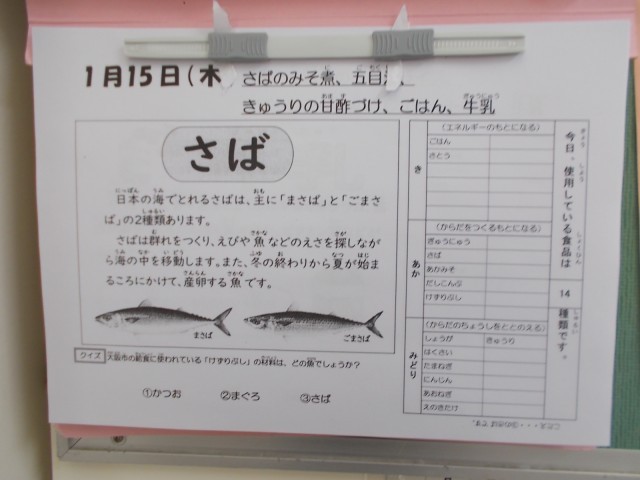 1月15日(木
さばのみそ煮、五目汁、
きゅうりの甘酢づけ、ごはん、牛乳
さば
日本の海でとれるさばは、主に「まさば」と「ごまさ
ば」の2種類あります。
さばは群れをつくり、えびや魚などのえさを探しなが
ら海の中を移動します。また、冬の終わりから夏が始ま
るころにかけて、産卵する魚です。
まさば
ごまさば
クイズ
大阪市の給食に使われている「けずりぶし」の材料は、どの魚でしょうか？
①かつお ②まぐろ ③さば
き
(エネルギーのもとになる)
ごはん
さとう
あか
(からだをつくるもとになる)
ぎゅうにゅう
さば
あかみそ
だしこんぶ
けずりぶし
みどり
(からだのちょうしをととのえる)
しょうが きゅうり
はくさい
たまねぎ
にんじん
あおねぎ
えのきたけ
今日、使用している食品は
14
種類です。